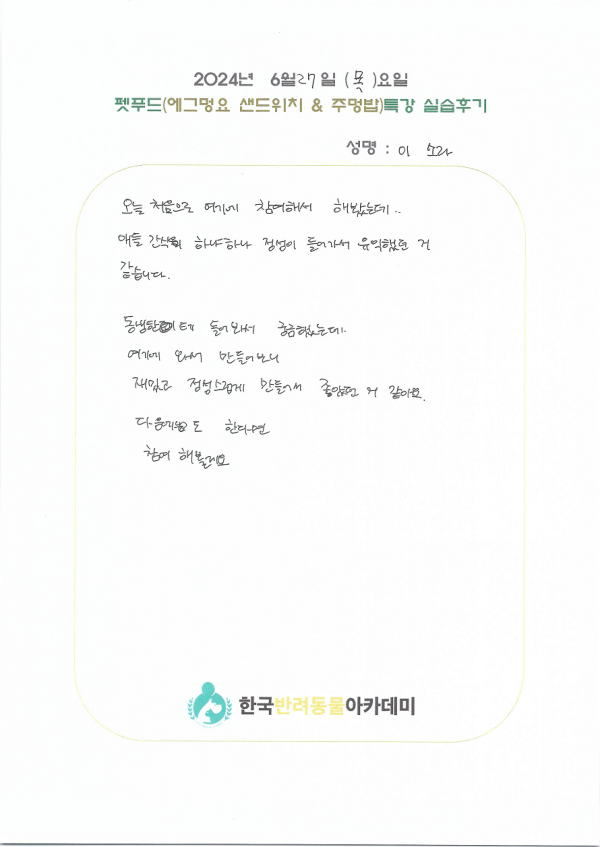 2024년 6월27일 (목)요일
펫푸드(에그멍요 샌드위치 & 주멍밥)특강 실습후기
성명 : 이 소라
오늘 처음으로 여기에 참여해서 해봤는데..
애들 간식이 하나하나 정성이 들어가서 유익했던 것
같습니다.
동생한테 들어와서 궁금했는데..
여기에 와서 만들어보니
재밌고 정성스럽게 만들어서 좋았던 거 같아요.
다음에도 한다면
참여 해볼게요
한국반려동물아카데미